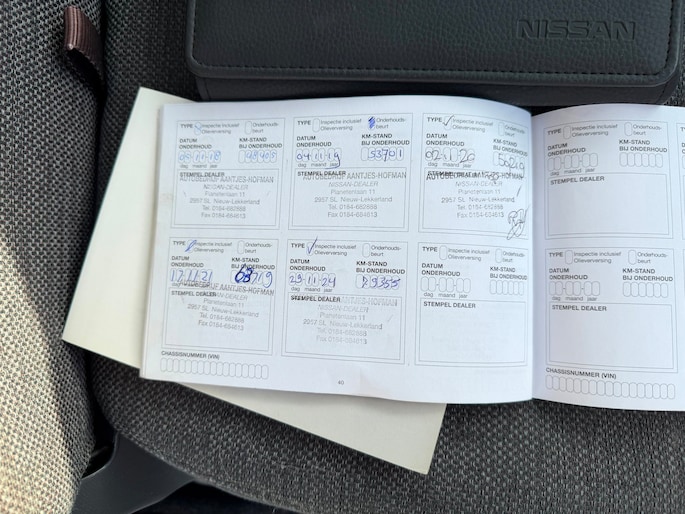 NISSAN
TYPE Inspectie inclusief Olieverversing Onderhouds-beurt
DATUM ONDERHOUD KM-STAND BIJ ONDERHOUD
dag maand jaar
STEMPEL DEALER
AUTOBEDRIJF AANTJES-HOFMAN
NISSAN-DEALER
Planetenlaan 11
2957 SL Nieuw-Lekkerland
Tel. 0184-682868
Fax 0184-684613
TYPE Inspectie inclusief Olieverversing Onderhouds-beurt
DATUM ONDERHOUD KM-STAND BIJ ONDERHOUD
04 11 19 53701
dag maand jaar
STEMPEL DEALER
AUTOBEDRIJF AANTJES-HOFMAN
NISSAN-DEALER
Planetenlaan 11
2957 SL Nieuw-Lekkerland
Tel. 0184-682868
Fax 0184-684613
TYPE Inspectie inclusief Olieverversing Onderhouds-beurt
DATUM ONDERHOUD KM-STAND BIJ ONDERHOUD
02 11 20
dag maand jaar
STEMPEL DEALER
AUTOBEDRIJF AANTJES-HOFMAN
NISSAN-DEALER
Planetenlaan 11
2957 SL Nieuw-Lekkerland
Tel. 0184-682868
Fax 0184-684613
TYPE Inspectie inclusief Olieverversing Onderhouds-beurt
DATUM ONDERHOUD KM-STAND BIJ ONDERHOUD
dag maand jaar
STEMPEL DEALER
TYPE Inspectie inclusief Olieverversing Onderhouds-beurt
DATUM ONDERHOUD KM-STAND BIJ ONDERHOUD
17 11 21
dag maand jaar
STEMPEL DEALER
AUTOBEDRIJF AANTJES-HOFMAN
NISSAN-DEALER
Planetenlaan 11
2957 SL Nieuw-Lekkerland
Tel. 0184-682868
Fax 0184-684613
TYPE Inspectie inclusief Olieverversing Onderhouds-beurt
DATUM ONDERHOUD KM-STAND BIJ ONDERHOUD
29 11 24
dag maand jaar
STEMPEL DEALER
AUTOBEDRIJF AANTJES-HOFMAN
NISSAN-DEALER
Planetenlaan 11
2957 SL Nieuw-Lekkerland
Tel. 0184-682868
Fax 0184-684613
TYPE Inspectie inclusief Olieverversing Onderhouds-beurt
DATUM ONDERHOUD KM-STAND BIJ ONDERHOUD
dag maand jaar
STEMPEL DEALER
TYPE Inspectie inclusief Olieverversing Onderhouds-beurt
DATUM ONDERHOUD KM-STAND BIJ ONDERHOUD
dag maand jaar
STEMPEL DEALER
CHASSISNUMMER (VIN)
40
CHASSISNUMMER (VIN)